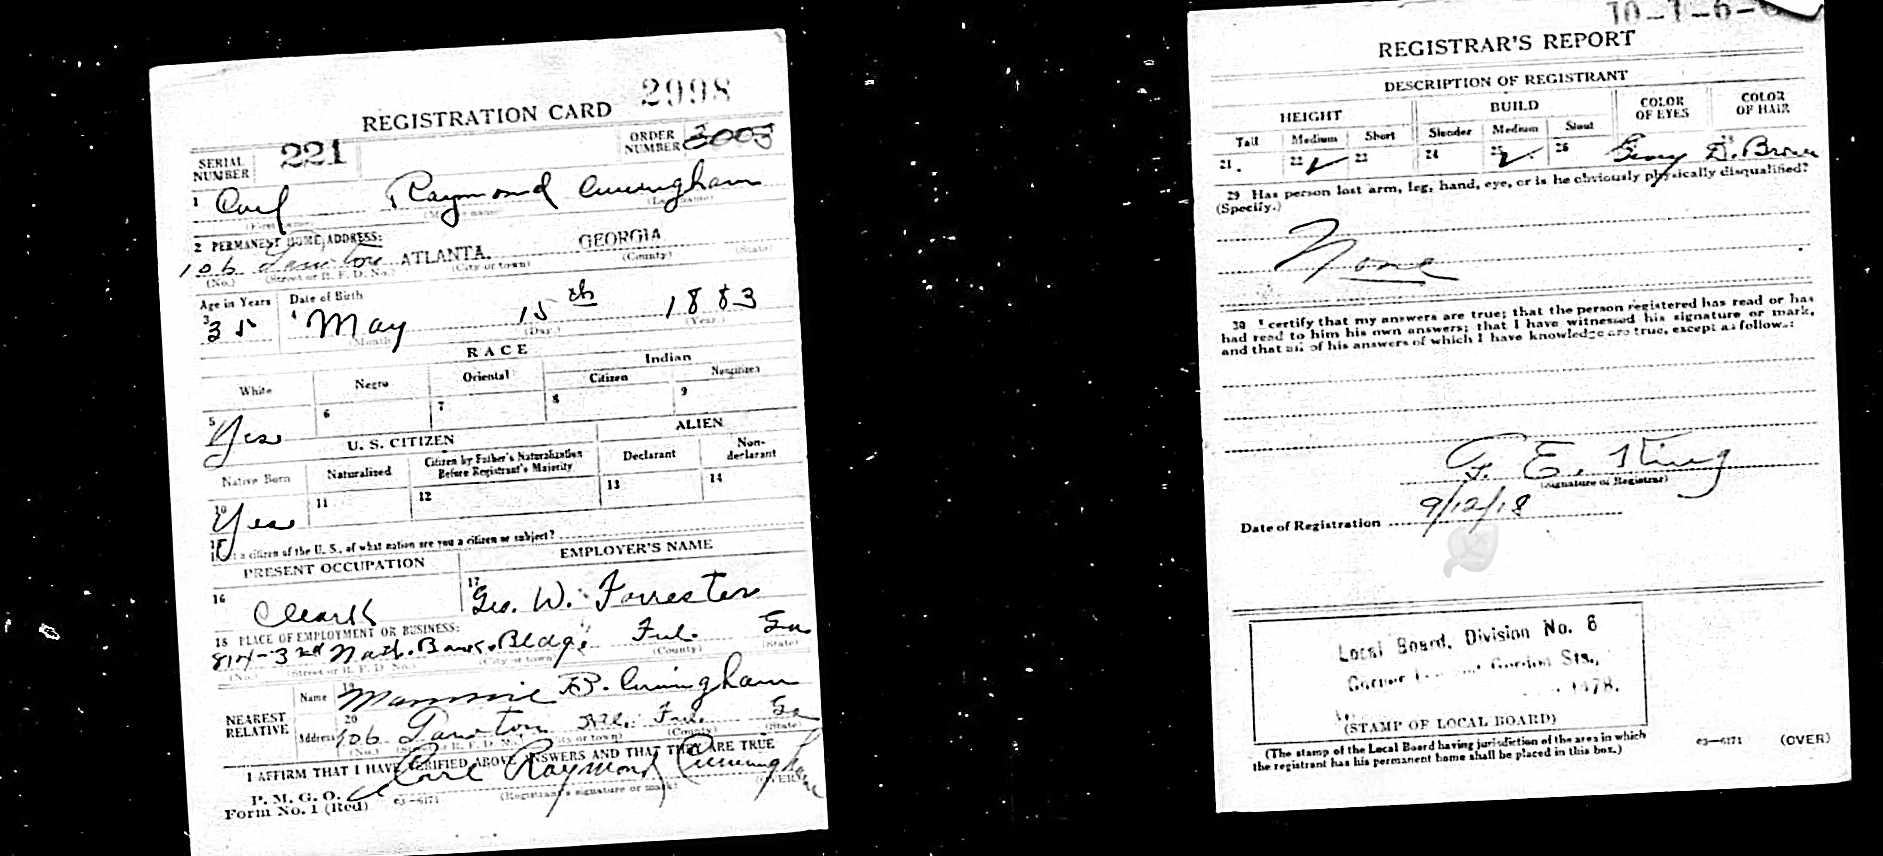 2998
REGISTRATION CARD
SERIAL NUMBER 221 ORDER NUMBER 3003
1 Carl Raymond Cunningham
(First name) (Middle name) (Last name)
2 PERMANENT HOME ADDRESS:
106 ATLANTA, GEORGIA
(No.) (Street or R. F. D. No.) (City or town) (County) (State)
Age in Years Date of Birth
3 35 4 May 15th 1883
(Month) (Day) (Year)
RACE
White Negro Oriental Indian
Citizen Noncitizen
5 Yes 6 7 8 9
U. S. CITIZEN ALIEN
Native Born Naturalized Citizen by Father's Naturalization Before Registrant's Majority Declarant Non-declarant
10 Yes 11 12 13 14
15 a citizen of the U. S., of what nation are you a citizen or subject?
PRESENT OCCUPATION EMPLOYER'S NAME
16 Cleark 17 Geo. W. Forrester
18 PLACE OF EMPLOYMENT OR BUSINESS:
814-3rd Natl. Bank Bldg. Ful. Ga
(No.) (Street or R. F. D. No.) (City or town) (County) (State)
NEAREST RELATIVE
Name 19 Mammie B. Cunningham
Address 20 106 Ful. Ga
(No.) (Street or R. F. D. No.) (City or town) (County) (State)
I AFFIRM THAT I HAVE VERIFIED ABOVE ANSWERS AND THAT THEY ARE TRUE
P. M. G. O.
Form No. 1 (Red) 03—6171 Carl Raymond Cunningham
(Registrant's signature or mark) (OVER)
REGISTRAR'S REPORT
DESCRIPTION OF REGISTRANT
HEIGHT BUILD COLOR OF EYES COLOR OF HAIR
Tall Medium Short Slender Medium Stout
21 22 ✓ 23 24 25 ✓ 26 D. Brown
29 Has person lost arm, leg, hand, eye, or is he obviously physically disqualified?
(Specify.)
None
30 I certify that my answers are true; that the person registered has read or has
had read to him his own answers; that I have witnessed his signature or mark,
and that all of his answers of which I have knowledge are true, except as follows:
E. King
(Signature of Registrar)
Date of Registration 9/12/18
Local Board, Division No. 6
Corner Gordon Sts.,
(STAMP OF LOCAL BOARD)
(The stamp of the Local Board having jurisdiction of the area in which
the registrant has his permanent home shall be placed in this box.)
03—6171 (OVER)